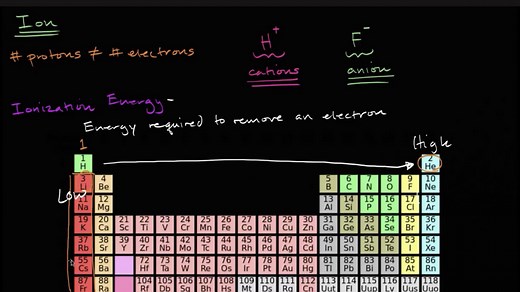 Ion
# protons ≠ # electrons
H+ F-
cations anion
Ionization Energy-
Energy required to remove an electron
1 High
1 2
H He
Low
3 4 5 6 7 8 9 10
Li Be B C N O F Ne
11 12 13 14 15 16 17 18
Na Mg Al Si P S Cl Ar
19 20 21 22 23 24 25 26 27 28 29 30 31 32 33 34 35 36
K Ca Sc Ti V Cr Mn Fe Co Ni Cu Zn Ga Ge As Se Br Kr
37 38 39 40 41 42 43 44 45 46 47 48 49 50 51 52 53 54
Rb Sr Y Zr Nb Mo Tc Ru Rh Pd Ag Cd In Sn Sb Te I Xe
55 56 72 73 74 75 76 77 78 79 80 81 82 83 84 85 86
Cs Ba Hf Ta W Re Os Ir Pt Au Hg Tl Pb Bi Po At Rn
87 88 104 105 106 107 108 109 110 111 112 113 114 115 116 117 118
Fr Ra Rf Db Sg Bh Hs Mt Ds Rg Cn Uut Fl Uup Lv Uus Uuo